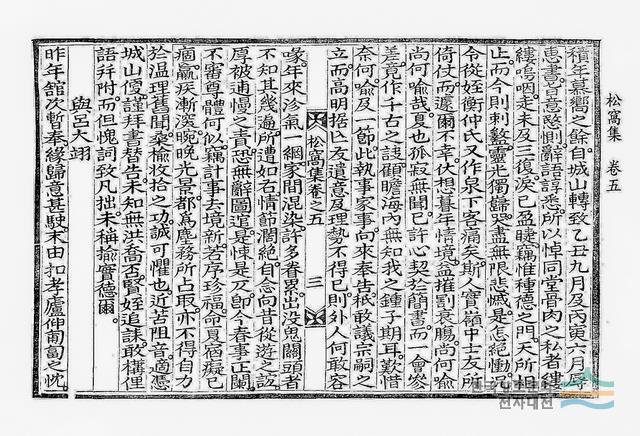 松窩集 卷五
積年慕嚮之餘自城山轉致乙丑九月及丙寅六月辱
惠書首意慇惻辭語諄悉所以悼同堂骨肉之私者縷
縷嗚咽走未及三復淚已盈睫竊惟種德之門天所
止而今則刺盭靈光獨歸哭盡無限悲慽是怎紀慟况
令從姪衡仲氏又作泉下客痛矣斯人實嶺中士友所
倚仗而遽爾不幸伏想暮年情境益摧割衰膓尚何喩
尚何喩哉夏也孤寂無聞已許心契於簡書而一會參
差竟作千古之詖顧瞻海內無知我之鍾子期耳歎惜
奈何喩及一節此執事家事向來奉告祇敢議宗嗣之
立而高明据亾友遺意及理勢不得已則外人何敢容
喙年來沴氣一網家間混染許多眷累出没鬼關頭者
不知其幾遍所遭如右情節濶絶自念向昔從遊之誼
厚被逋慢之青恐無辭圖逭是悚是仄卽今春事正闌
不審尊體何似竊計事去境新若序珍福命夏宿癡已
痼羸疾漸深晼晚光景都爲塵務所占取亦不得自力
於温理舊聞桑楡收拾之功誠可懼也近苦阻音適憑
城山便謹拜書替告未知無洪喬否賢姪追誄敢構俚
語幷附而但愧詞致凡拙未稱揄實德爾
與呂大翊
昨年舘次暫奉緣歸意甚駛末由扣孝廬伸匍匐之忱
松窩集卷之五
三